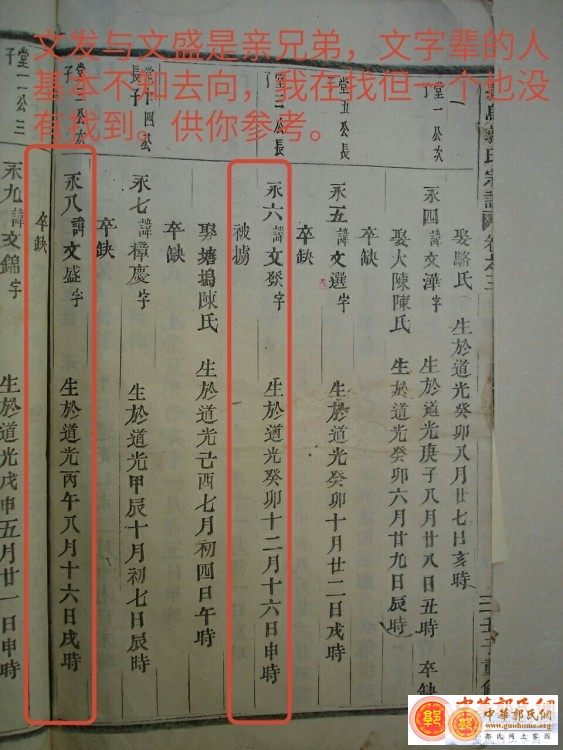 文发与文盛是亲兄弟，文字辈的人
基本不知去向，我在找但一个也没
有找到。供你参考。
郭氏宗譜 卷之三
娶駱氏 生於道光癸卯八月廿七日亥時
堂一公次子
永四 諱文澤 字 生於道光庚子八月廿八日丑時 卒缺
娶大陳陳氏 生於道光癸卯六月廿九日辰時
卒缺
堂五公長子
永五 諱文選 字 生於道光癸卯十月廿二日戌時
卒缺
堂三公長子
永六 諱文發 字 生於道光癸卯十二月十六日申時
被擄
娶塘塢陳氏 生於道光己酉七月初四日午時
卒缺
堂十四公長子
永七 諱樟慶 字 生於道光甲辰十月初七日辰時
卒缺
堂三公次子
永八 諱文盛 字 生於道光丙午八月十六日戌時
卒缺
堂一一公三子
永九 諱文錦 字 生於道光戊申五月廿一日申時
中華郭氏網
www.guohome.org
郭氏网上家园